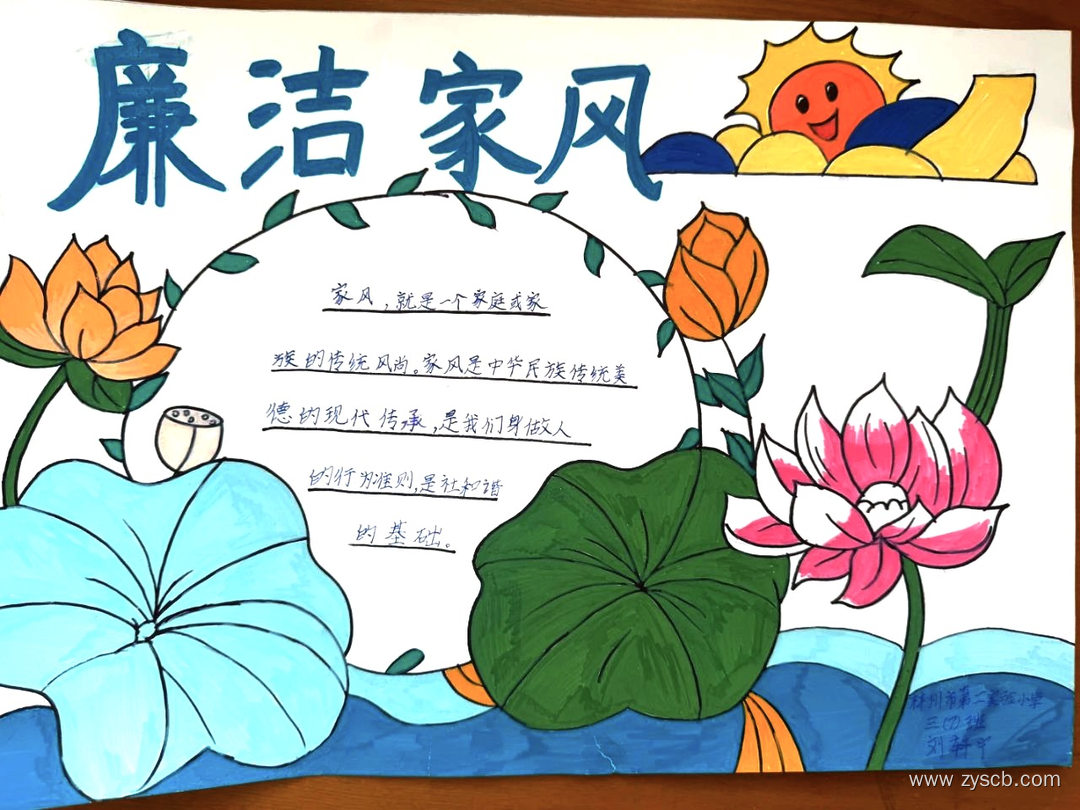 廉洁家风
家风,就是一个家庭或家
族的传统风尚。家风是中华民族传统美
德的现代传承,是我们身做人
的行为准则,是社和谐
的基础。
林州市第二实验小学
三(7)班
刘
www.zyscb.com